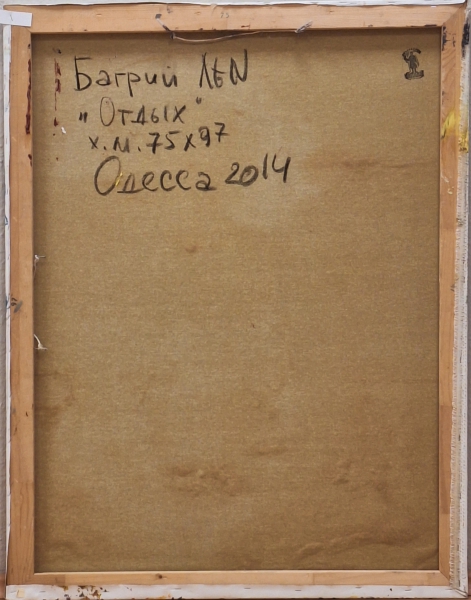 Багрий ЛЕN
"Отдых"
х.м. 75х97
Одесса 2014